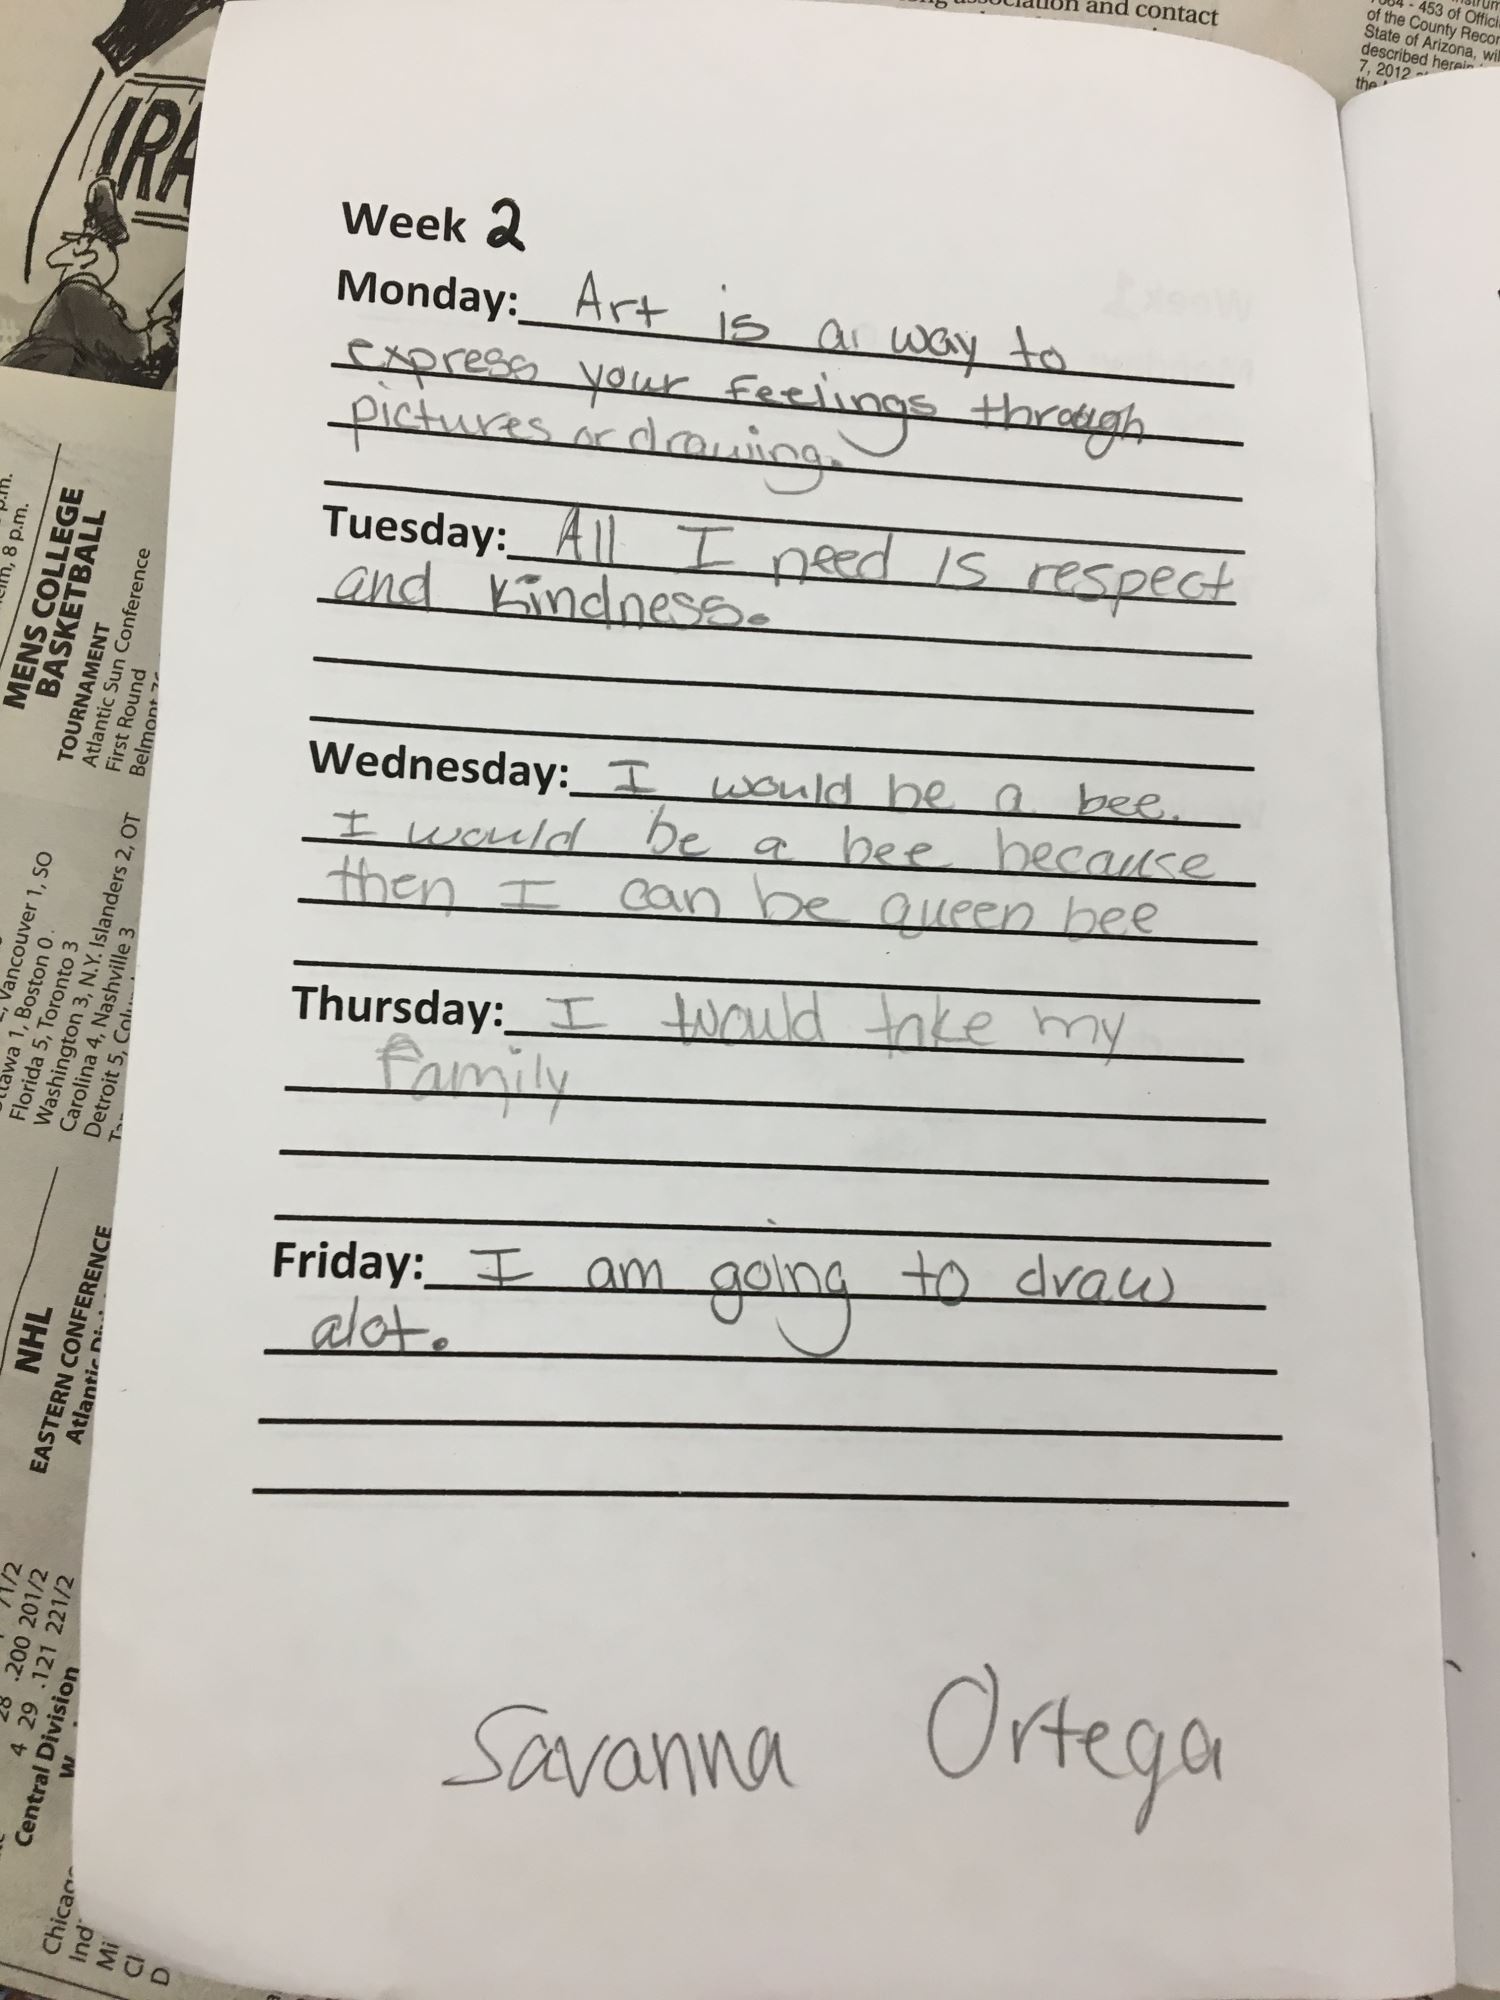 ociation and contact
- 453 of Offici
of the County Recor
State of Arizona, wil
described herein
7, 2012
the
IRA
Week 2
Monday: Art is a way to
express your feelings through
pictures or drawing.
Tuesday: All I need is respect
and kindness.
Wednesday: I would be a bee.
I would be a bee because
then I can be queen bee
Thursday: I would take my
family
Friday: I am going to draw
alot.
Savanna Ortega
p.m.
8 p.m.
MENS COLLEGE
BASKETBALL
TOURNAMENT
Atlantic Sun Conference
First Round
Belmont
Vancouver 1, SO
Ottawa 1, Boston 0
Florida 5, Toronto 3
Washington 3, N.Y. Islanders 2, OT
Carolina 4, Nashville 3
Detroit 5,
NHL
EASTERN CONFERENCE
Atlantic
71/2
28 .200 201/2
4 29 .121 221/2
Central Division
W
Chicag
Ind
Mi
Cl
D